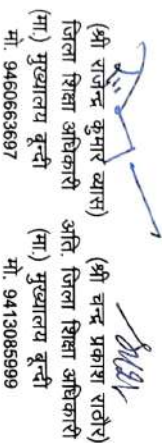 (श्री राजेन्द्र कुमार व्यास)
जिला शिक्षा अधिकारी
(मा.) मुख्यालय बून्दी
मो. 9460663697
(श्री चन्द्र प्रकाश राठौर)
अति. जिला शिक्षा अधिकारी
(मा.) मुख्यालय बून्दी
मो. 9413085999